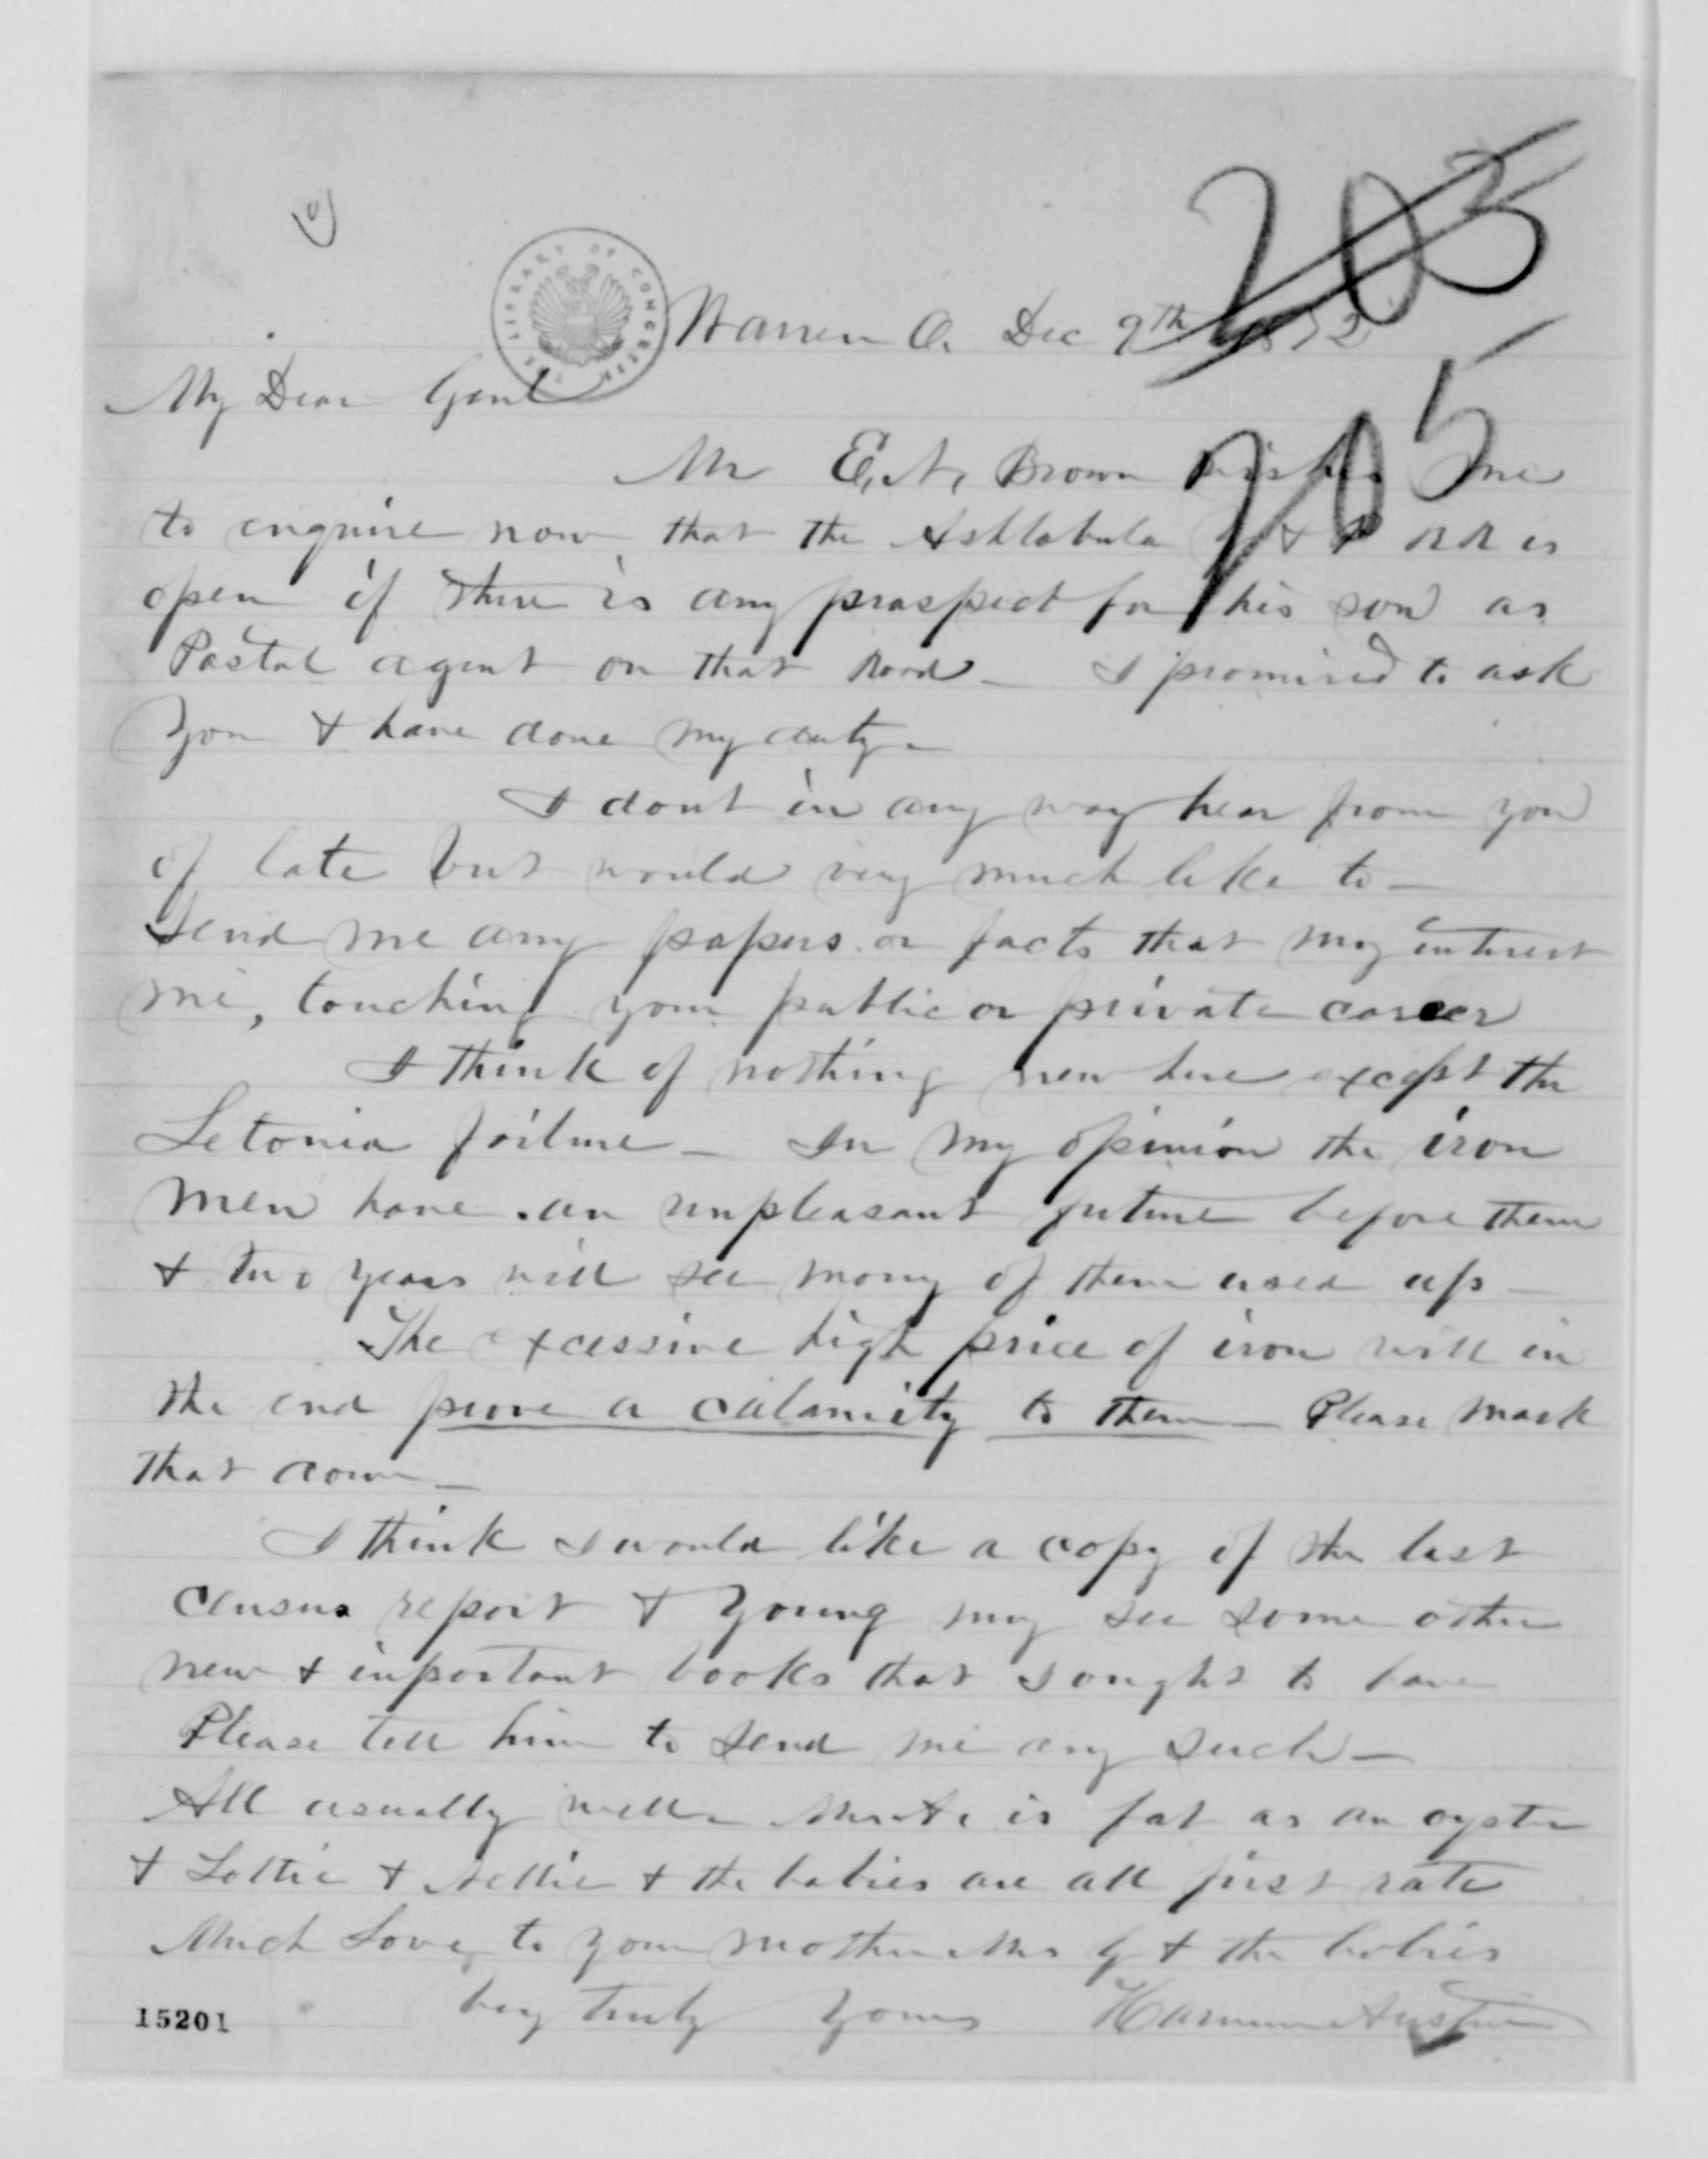 203
THE LIBRARY OF CONGRESS
Warren O. Dec 9th 1872
My Dear Genl
205
Mr E. A. Brown wishes me
to enquire now that the Ashtabula Y & P RR is
open if there is any prospect for his son as
Postal agent on that Road - I promised to ask
you & have done my duty -
I dont in any way hear from you
of late but would very much like to -
Send me any papers or facts that may interest
me, touching your public or private career
I think of nothing new here except the
Letonia failure - In my opinion the iron
men have an unpleasant future before them
& two years will see many of them used up -
The excessive high price of iron will in
the end prove a calamity to them - Please mark
that down -
I think I would like a copy of the last
census report & Young may see some other
new & important books that I ought to have
Please tell him to send me any such -
All usually well - Mrs A. is fat as an oyster
& Lottie & Nellie & the babies are all first rate
Much Love to your mother Mrs G & the babies
Very truly yours Harmon Austin
15201